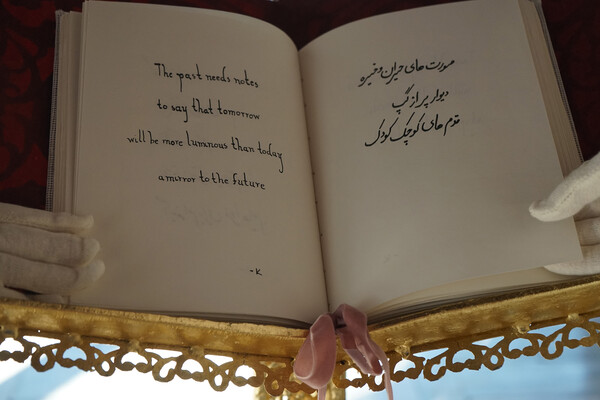 The past needs notes
to say that tomorrow
will be more luminous than today
a mirror to the future
-K
صورت های حیران و خیره
دیوار پر از گپ
قدم های کوچک کودک